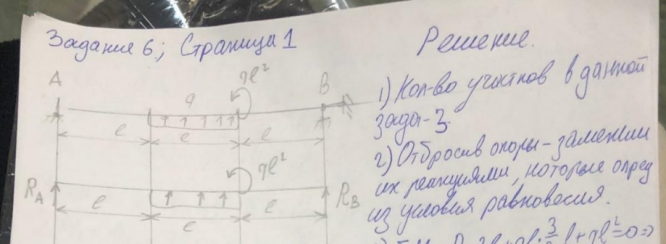 Задание 6; Страница 1
Решение.
1) Кол-во участков в данной
задаче - 3.
2) Отбросив опоры - заменим
их реакциями, которые опред
из условия равновесия.
A
q
ql²
B
l
l
l
R_A
ql²
R_B
l
l
l